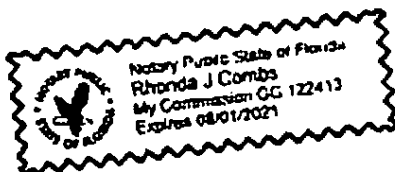 NOTARY PUBLIC
STATE OF FLORIDA
Notary Public State of Florida
Rhonda J Combs
My Commission GG 122413
Expires 08/01/2021